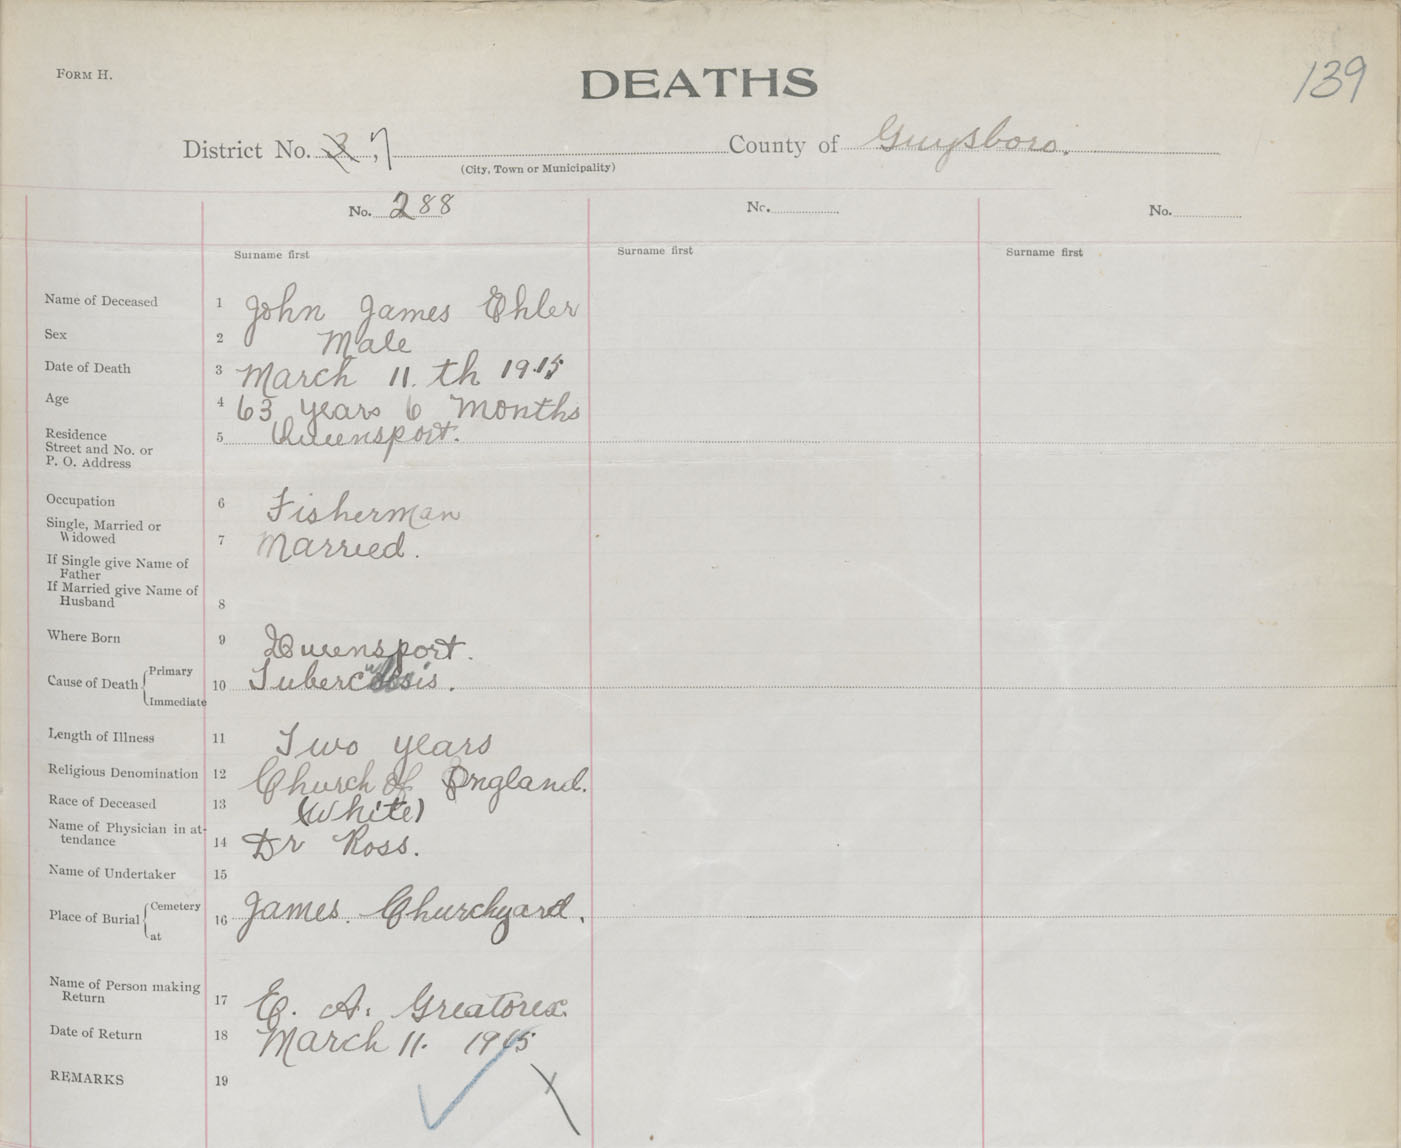 FORM H.
DEATHS
139
District No. 3, 7 County of Guysboro.
(City, Town or Municipality)
No. 288 No. No.
Surname first Surname first Surname first
Name of Deceased 1 John James Ehler
Sex 2 Male
Date of Death 3 March 11.th 1915
Age 4 63 years 6 Months
Residence
Street and No. or
P. O. Address 5 Queensport.
Occupation 6 Fisherman
Single, Married or
Widowed 7 Married.
If Single give Name of
Father
If Married give Name of
Husband 8
Where Born 9 Queensport.
Cause of Death Primary
Immediate 10 Tuberculosis.
Length of Illness 11 Two years
Religious Denomination 12 Church of England.
Race of Deceased 13 (White)
Name of Physician in at-
tendance 14 Dr Ross.
Name of Undertaker 15
Place of Burial Cemetery
at 16 James. Churchyard.
Name of Person making
Return 17 E. A. Greatorex.
Date of Return 18 March 11. 1915
REMARKS 19